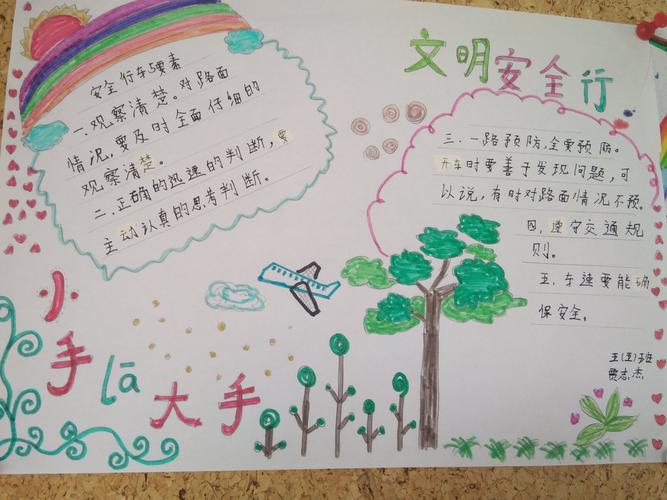 文明安全行
安全行车5要素
一.观察清楚。对路面
情况,要及时全面仔细的
观察清楚。
二.正确的迅速的判断,要
主动认真的思考判断。
三.一路预防,全要预防。
开车时要善于发现问题,可
以说,有时对路面情况不预。
四.遵守交通规
则。
五.车速要能确
保安全。
五(五)班
贾志杰
小
手
lā
大手